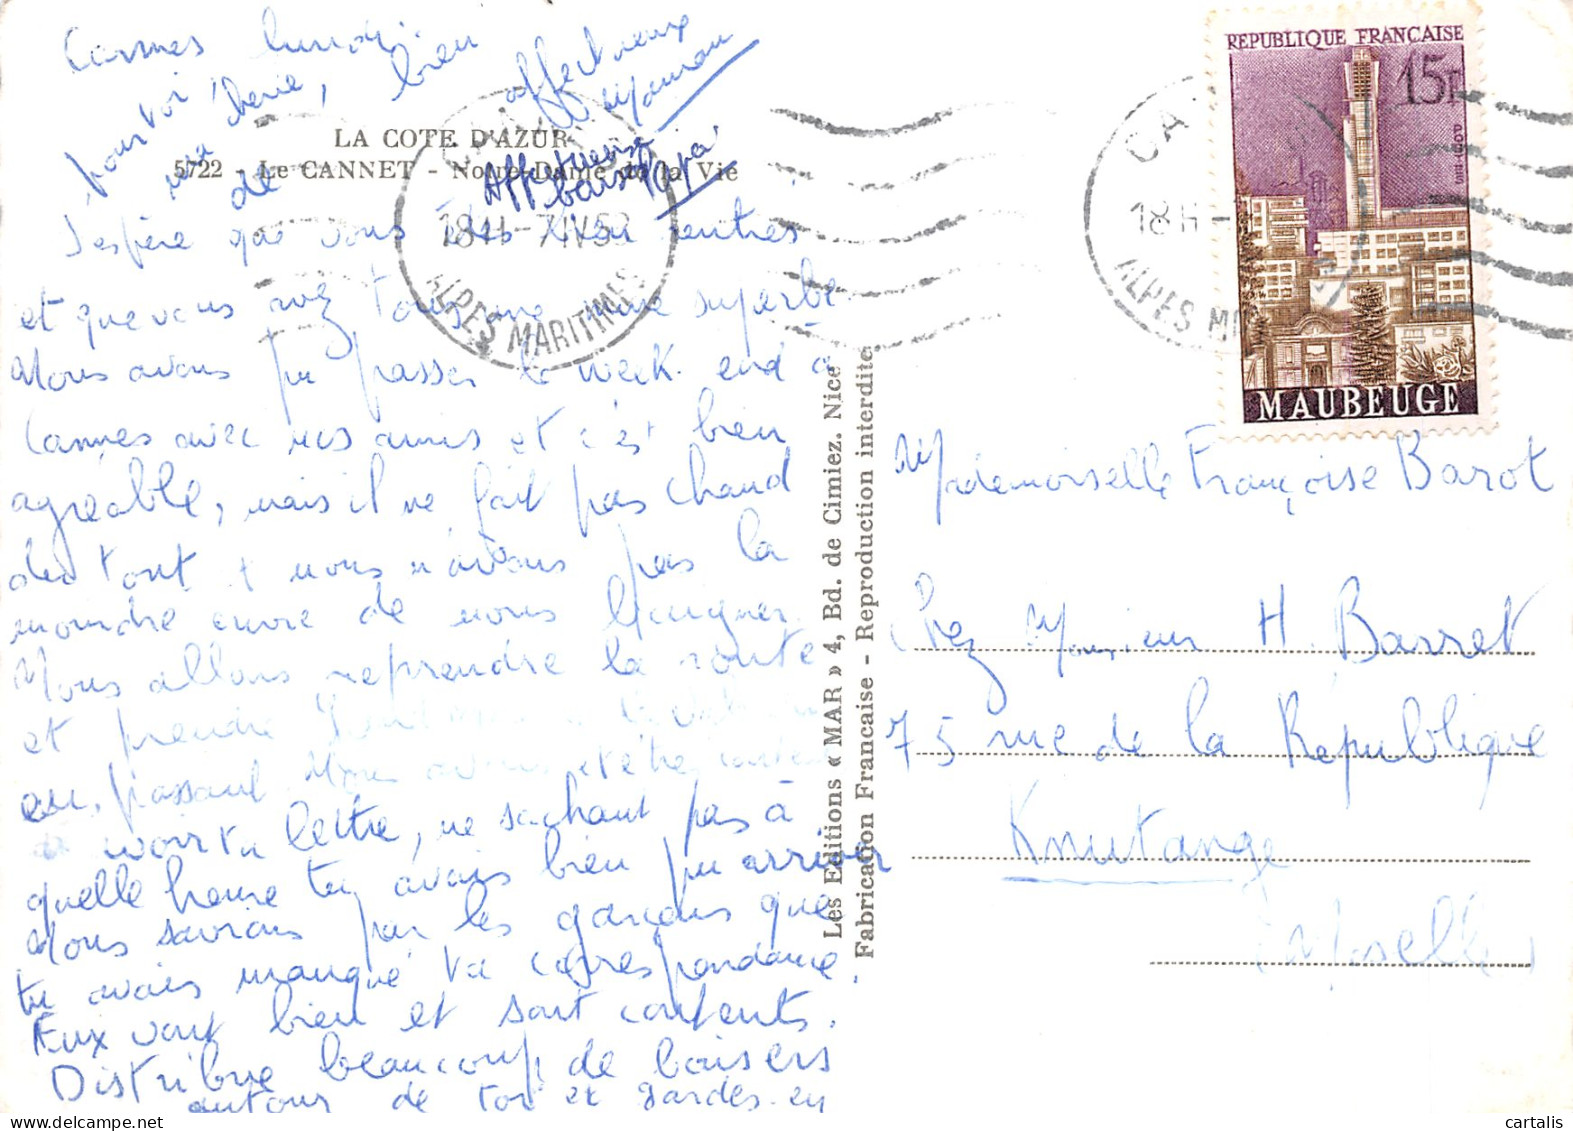 Cannes lundi.
LA COTE D'AZUR
5722 - Le CANNET - Notre-Dame de la Vie
J'espère que vous êtes bien rentrés
et que vous avez tous une mine superbe
Nous avons pu passer le week-end à
Cannes avec nos amis et c'est bien
agréable, mais il ne fait pas chaud
du tout & nous n'avons pas la
moindre envie de nous baigner.
Nous allons reprendre la route
et prendre
en passant. Nous avons été
voir ta lettre, ne sachant pas à
quelle heure tu avais bien pu arriver
Nous savions par les garçons que
tu avais manqué ta correspondance.
Eux vont bien et sont contents.
Distribue beaucoup de baisers
autour de toi et gardes-en
pour toi, ma chérie, bien
affectueux
de maman
Affectueux
baisers
Papa
CANNES
18H - 7 IV 58
ALPES MARITIMES
Les Editions « MAR » 4, Bd. de Cimiez. Nice
Fabrication Francaise - Reproduction interdite
REPUBLIQUE FRANÇAISE
15F
MAUBEUGE
CA
18H -
ALPES M
Mademoiselle Françoise Barot
Chez Monsieur H. Barret
75 rue de la République
Knutange
(Moselle)
cartalis
delcampe.net